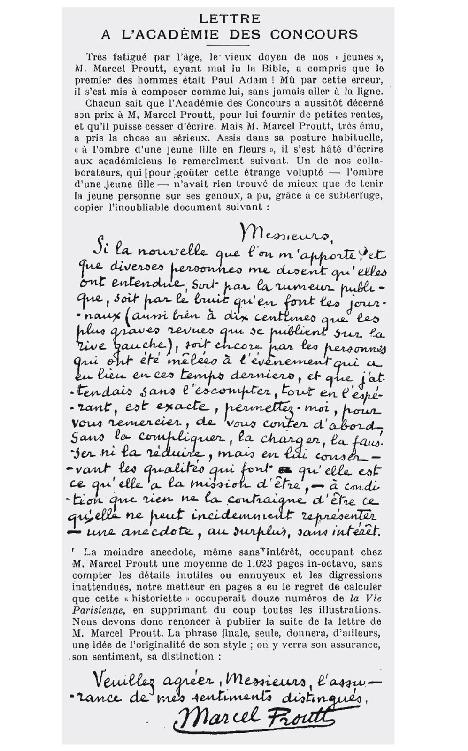 LETTRE
A L'ACADÉMIE DES CONCOURS
Très fatigué par l'âge, le vieux doyen de nos « jeunes »,
M. Marcel Proutt, ayant mal lu la Bible, a compris que le
premier des hommes était Paul Adam ! Mû par cette erreur,
il s'est mis à composer comme lui, sans jamais aller à la ligne.
Chacun sait que l'Académie des Concours a aussitôt décerné
son prix à M. Marcel Proutt, pour lui fournir de petites rentes,
et qu'il puisse cesser d'écrire. Mais M. Marcel Proutt, très ému,
a pris la chose au sérieux. Assis dans sa posture habituelle,
« à l'ombre d'une jeune fille en fleurs », il s'est hâté d'écrire
aux académiciens le remerciment suivant. Un de nos colla-
borateurs, qui (pour goûter cette étrange volupté — l'ombre
d'une jeune fille — n'avait rien trouvé de mieux que de tenir
la jeune personne sur ses genoux, a pu, grâce a ce subterfuge,
copier l'inoubliable document suivant :
Messieurs,
Si la nouvelle que l'on m'apporte et
que diverses personnes me disent qu'elles
ont entendue, soit par la rumeur publi-
que, soit par le bruit qu'en font les jour-
-naux (aussi bien à dix centimes que les
plus graves revues qui se publient sur la
rive gauche), soit encore par les personnes
qui ont été mêlées à l'événement qui a
eu lieu en ces temps derniers, et que j'at-
-tendais sans l'escompter, tout en l'espé-
-rant, est exacte, permettez-moi, pour
vous remercier, de vous conter d'abord,
sans la compliquer, la charger, la faus-
-ser ni la réduire, mais en lui conser-
-vant les qualités qui font qu'elle est
ce qu'elle a la mission d'être, — à condi-
-tion que rien ne la contraigne d'être ce
qu'elle ne peut incidemment représenter
— une anecdote, au surplus, sans intérêt.
La moindre anecdote, même sans intérêt, occupant chez
M. Marcel Proutt une moyenne de 1.023 pages in-octavo, sans
compter les détails inutiles ou ennuyeux et les digressions
inattendues, notre metteur en pages a eu le regret de calculer
que cette « historiette » occuperait douze numéros de la Vie
Parisienne, en supprimant du coup toutes les illustrations.
Nous devons donc renoncer à publier la suite de la lettre de
M. Marcel Proutt. La phrase finale, seule, donnera, d'ailleurs,
une idée de l'originalité de son style ; on y verra son assurance,
son sentiment, sa distinction :
Veuillez agréer, Messieurs, l'assu-
-rance de mes sentiments distingués.
Marcel Proutt